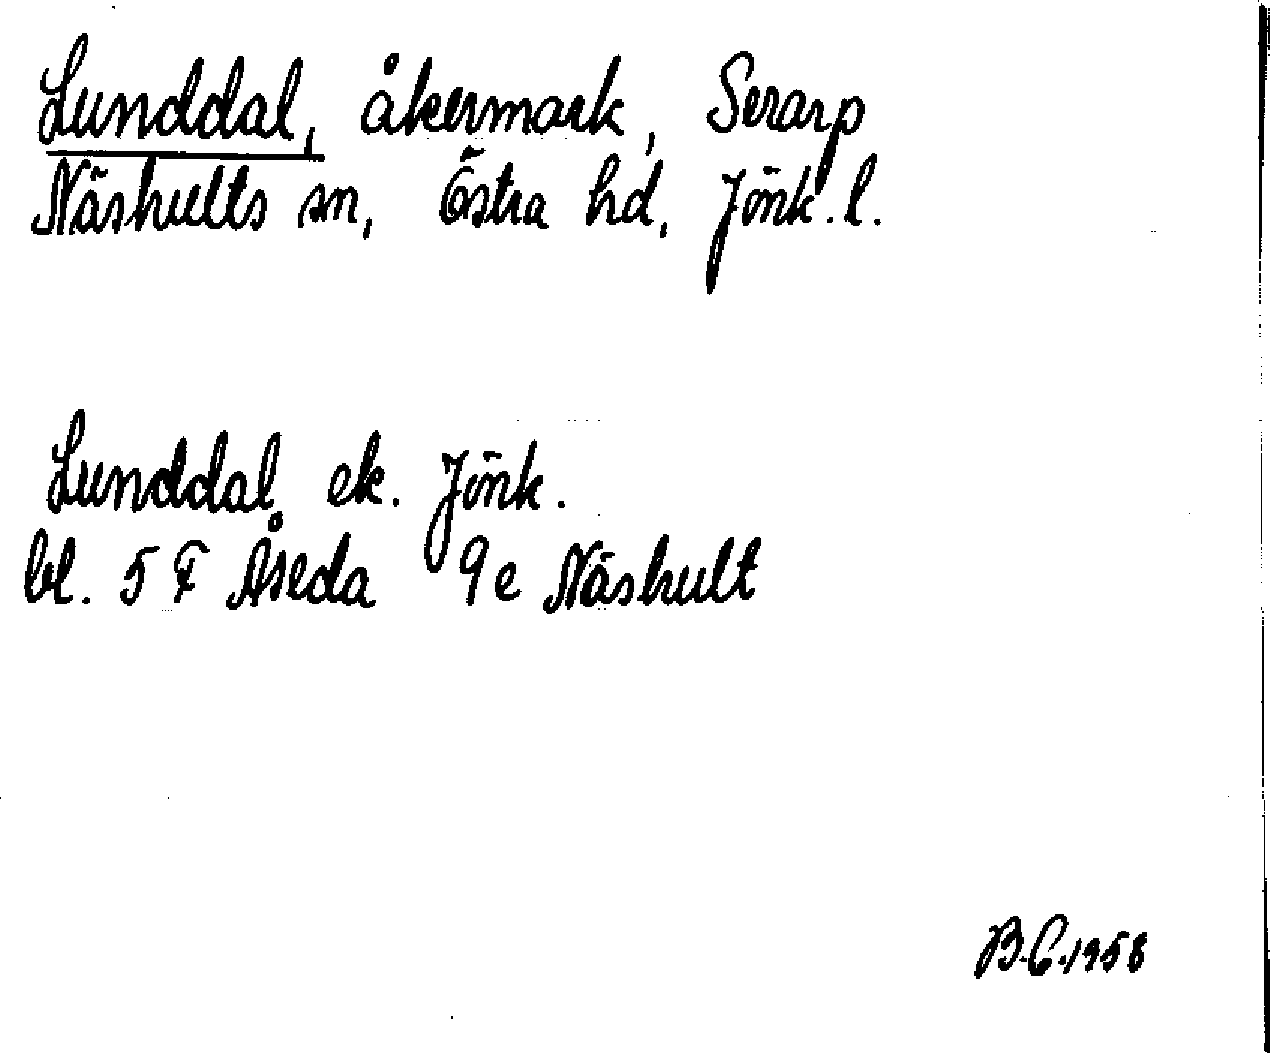 Lunddal, åkermark, Serarp
Näshults sn, Östra hd, Jönk. l.
Lunddal ek. Jönk.
bl. 5 F Åseda 9 e Näshult
B.C. 1958